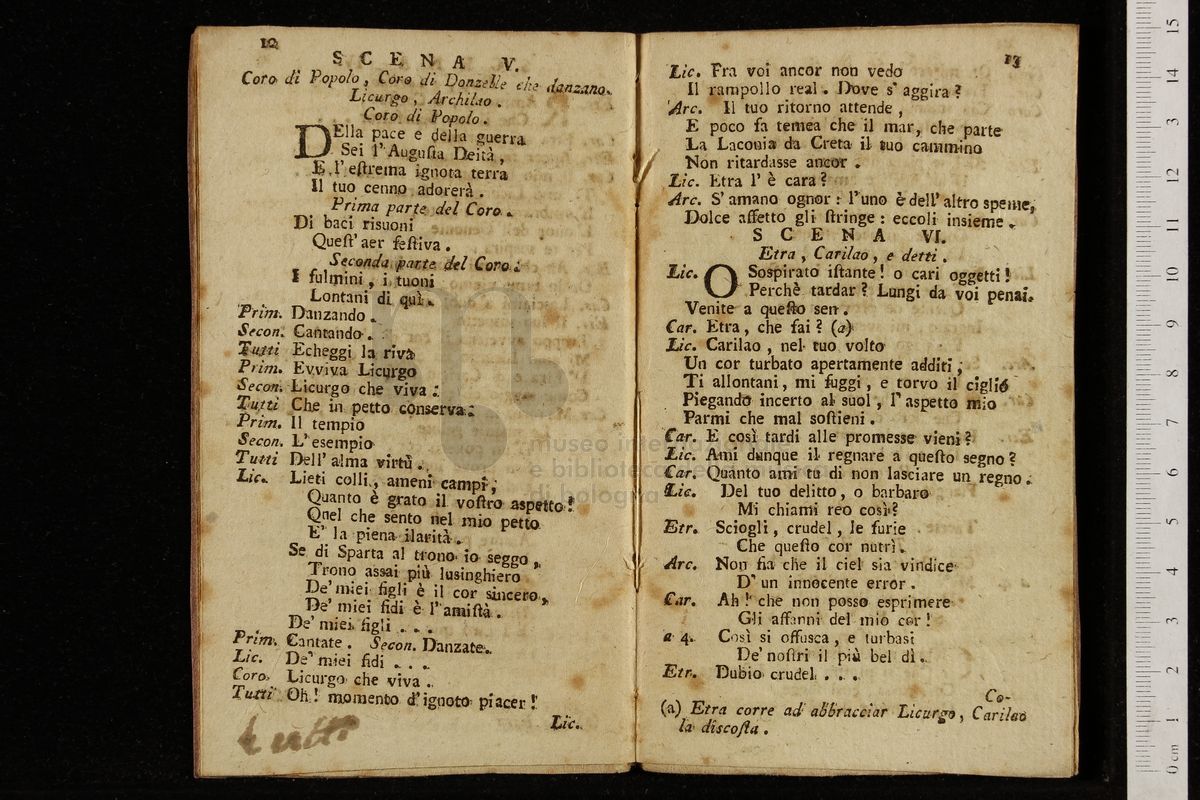 12
SCENA V.
Coro di Popolo, Coro di Donzelle che danzano.
Licurgo, Archilao.
Coro di Popolo.
DElla pace e della guerra
Sei l'Auguſta Deità,
E l'eſtrema ignota terra
Il tuo cenno adorerà.
Prima parte del Coro.
Di baci riſuoni
Queſt' aer feſtiva.
Seconda parte del Coro.
I fulmini, i tuoni
Lontani di quì.
Prim. Danzando.
Secon. Cantando.
Tutti Echeggi la riva
Prim. Evviva Licurgo
Secon. Licurgo che viva.
Tutti Che in petto conſerva.
Prim. Il tempio
Secon. L'eſempio
Tutti Dell' alma virtù.
Lic. Lieti colli, ameni campi,
Quanto è grato il voſtro aſpetto!
Quel che sento nel mio petto
E' la piena ilarità.
Se di Sparta al trono io seggo,
Trono assai più luſinghiero
De' miei figli è il cor sincero,
De' miei fidi è l'amiſtà.
De' miei figli . . .
Prim. Cantate. Secon. Danzate.
Lic. De' miei fidi . . .
Coro. Licurgo che viva.
Tutti Oh! momento d'ignoto piacer!
Lic.
tutti
13
Lic. Fra voi ancor non vedo
Il rampollo real. Dove s'aggira?
Arc. Il tuo ritorno attende,
E poco fa temea che il mar, che parte
La Laconia da Creta il tuo cammino
Non ritardasse ancor.
Lic. Etra l'è cara?
Arc. S'amano ognor: l'uno è dell'altro speme,
Dolce affetto gli ſtringe: eccoli insieme.
SCENA VI.
Etra, Carilao, e detti.
Lic. O Sospirato iſtante! o cari oggetti!
Perchè tardar? Lungi da voi penai.
Venite a queſto sen.
Car. Etra, che fai? (a)
Lic. Carilao, nel tuo volto
Un cor turbato apertamente additi;
Ti allontani, mi fuggi, e torvo il ciglio
Piegando incerto al suol, l'aspetto mio
Parmi che mal soſtieni.
Car. E così tardi alle promesse vieni?
Lic. Ami dunque il regnare a queſto segno?
Car. Quanto ami tu di non lasciare un regno.
Lic. Del tuo delitto, o barbaro
Mi chiami reo così?
Etr. Sciogli, crudel, le furie
Che queſto cor nutrì.
Arc. Non fia che il ciel sia vindice
D'un innocente error.
Car. Ah! che non posso esprimere
Gli affanni del mio cor!
a 4. Così si offusca, e turbasi
De' noſtri il più bel dì.
Etr. Dubio crudel . . .
Co-
(a) Etra corre ad abbracciar Licurgo, Carilao
la discoſta.
museo internazionale
e biblioteca della musica
di bologna
15
14
13
12
11
10
9
8
7
6
5
4
3
2
1
0 cm